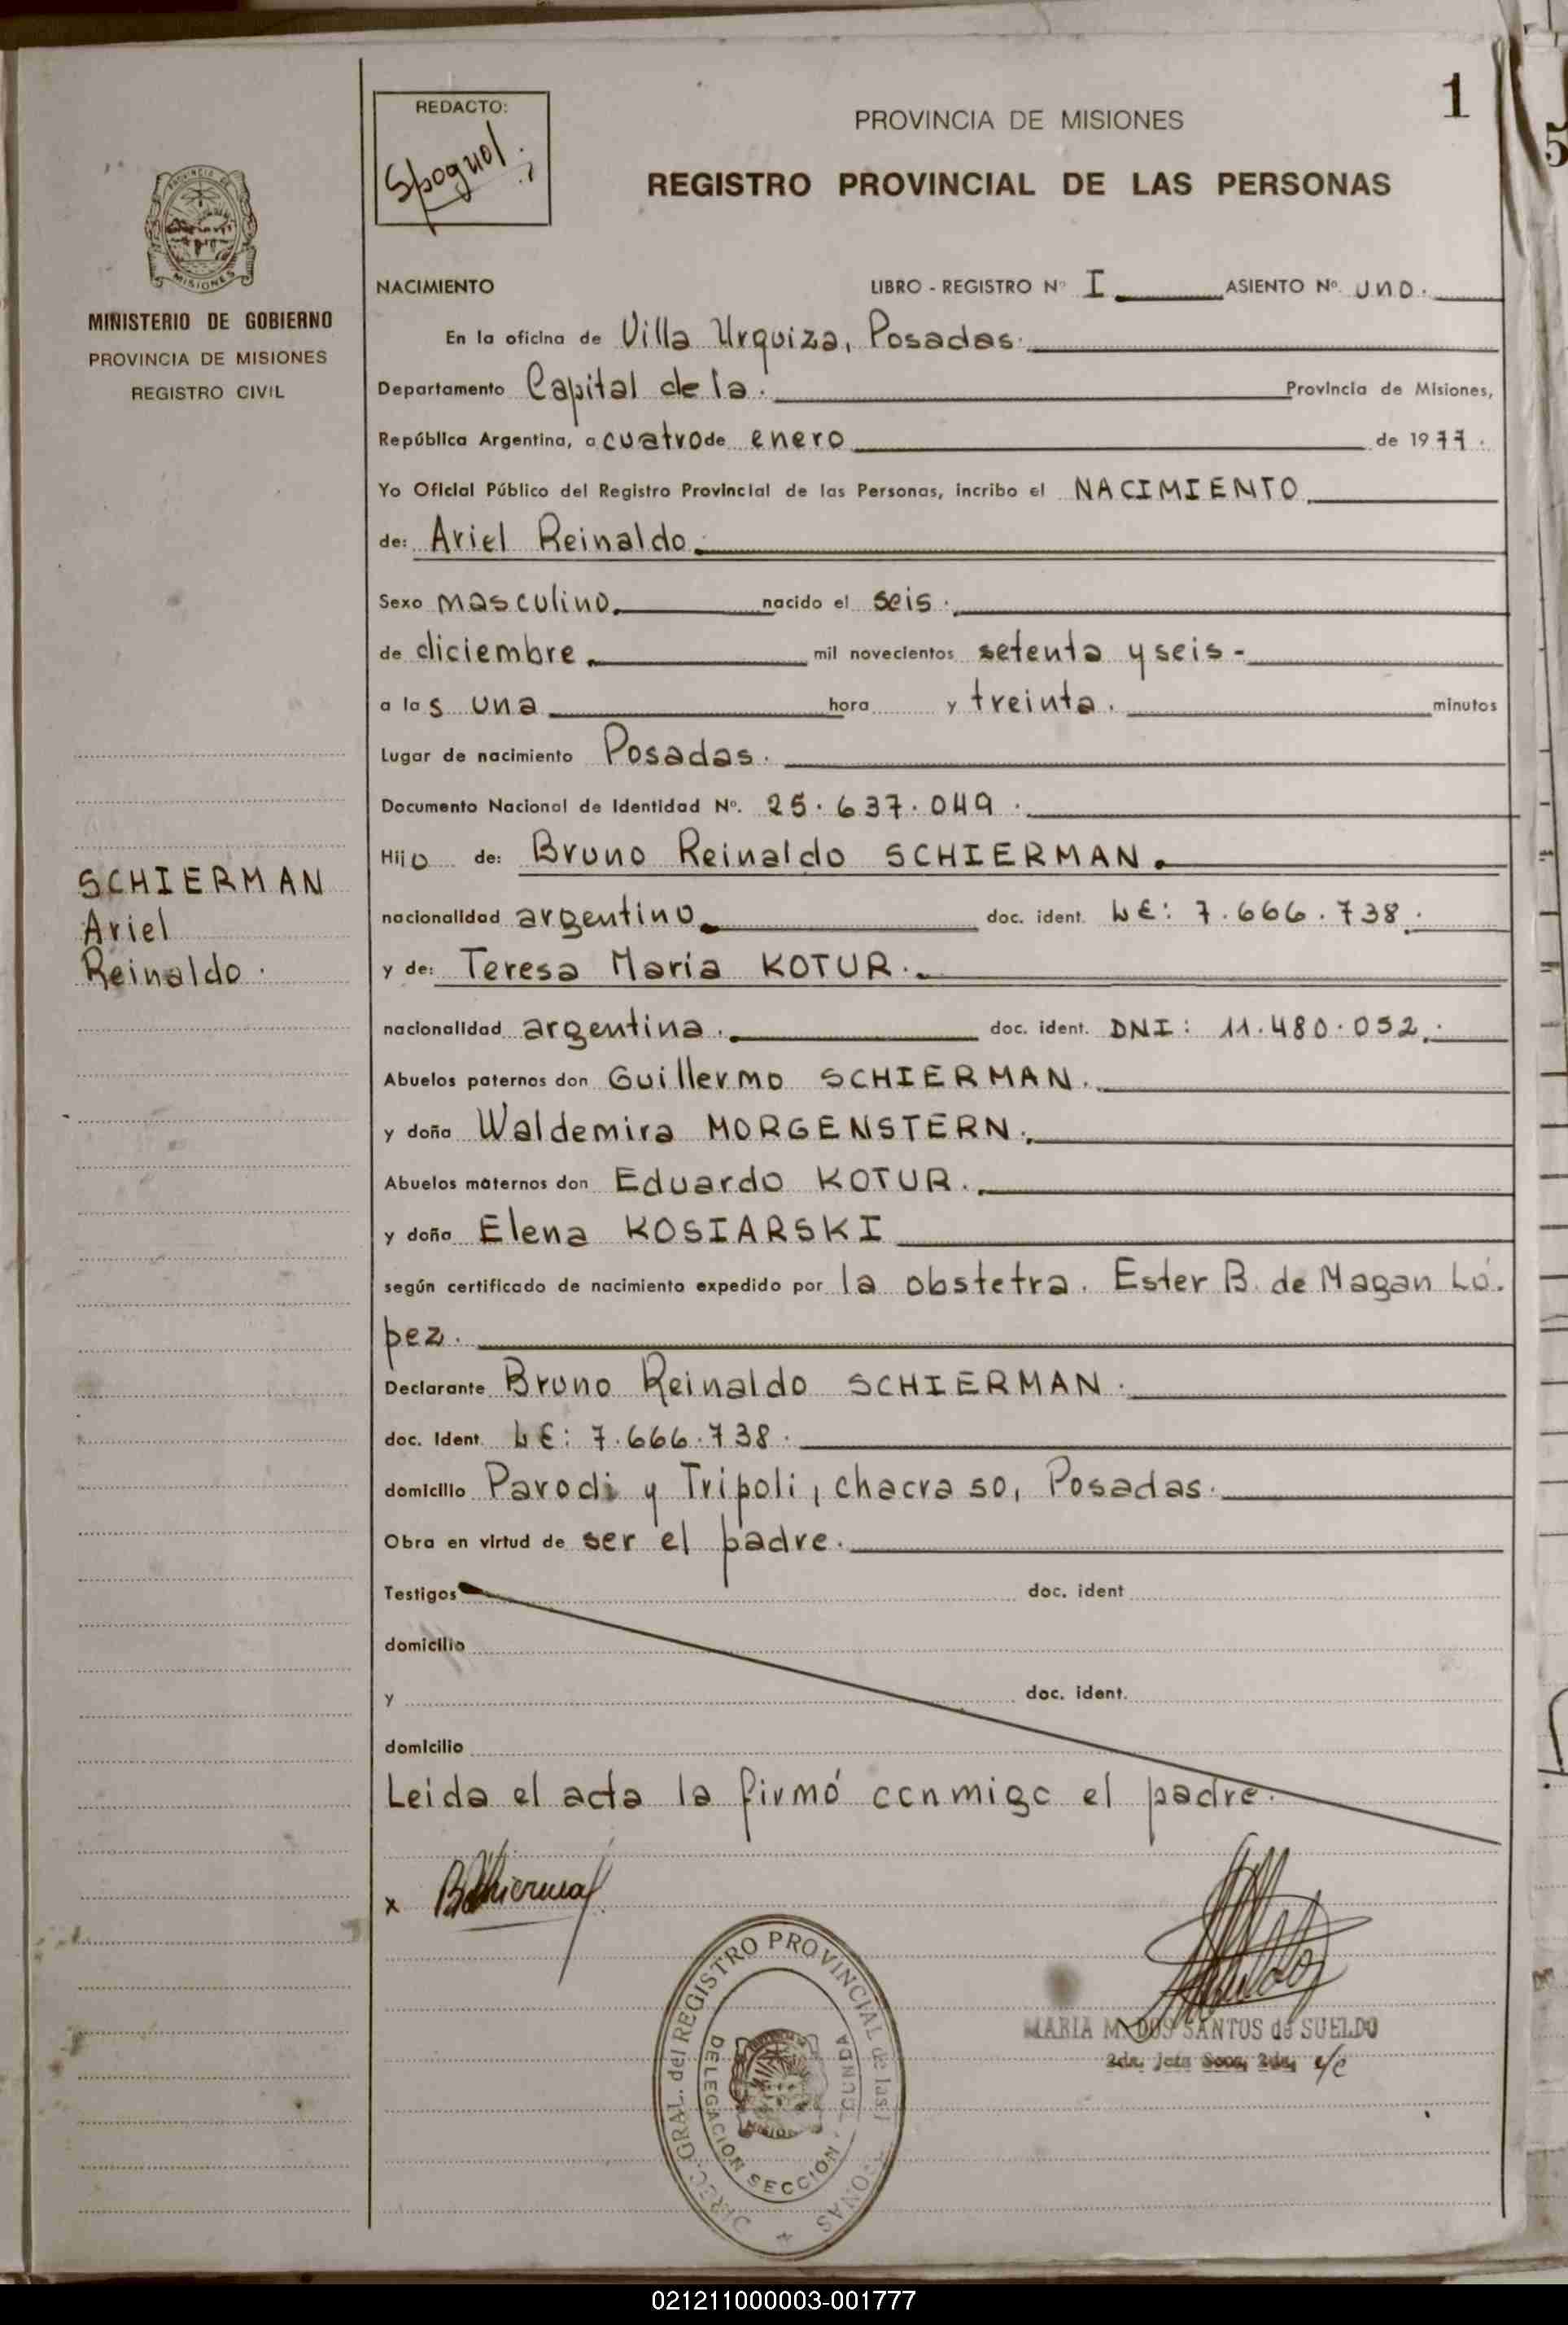 1
REDACTO:
Spognol
PROVINCIA DE MISIONES
REGISTRO PROVINCIAL DE LAS PERSONAS
MISIONES
MINISTERIO DE GOBIERNO
PROVINCIA DE MISIONES
REGISTRO CIVIL
NACIMIENTO LIBRO - REGISTRO Nº I ASIENTO Nº uno.
En la oficina de Villa Urquiza, Posadas.
Departamento Capital de la. Provincia de Misiones,
República Argentina, a cuatro de enero de 1977.
Yo Oficial Público del Registro Provincial de las Personas, incribo el NACIMIENTO
de: Ariel Reinaldo.
Sexo masculino. nacido el seis.
de diciembre. mil novecientos setenta y seis -
a las una hora y treinta. minutos
Lugar de nacimiento Posadas.
Documento Nacional de Identidad Nº. 25.637.049.
Hijo de: Bruno Reinaldo SCHIERMAN.
SCHIERMAN
Ariel
Reinaldo.
nacionalidad argentino. doc. ident. LE: 7.666.738.
y de: Teresa María KOTUR.
nacionalidad argentina. doc. ident. DNI: 11.480.052.
Abuelos paternos don Guillermo SCHIERMAN.
y doña Waldemira MORGENSTERN.
Abuelos maternos don Eduardo KOTUR.
y doña Elena KOSIARSKI
según certificado de nacimiento expedido por la obstetra. Ester B. de Magan Ló.
pez.
Declarante Bruno Reinaldo SCHIERMAN.
doc. Ident. LE: 7.666.738.
domicilio Parodi y Tripoli, chacra 50, Posadas.
Obra en virtud de ser el padre.
Testigos doc. ident
domicilio
y doc. ident.
domicilio
Leida el acta la firmó conmigo el padre.
x BRSchierman
DIREC. GRAL. del REGISTRO PROVINCIAL de las PERSONAS
DELEGACION SECCION
MARIA M. DOS SANTOS de SUELDO
2da. Jefa Secc. 2da. e/c
021211000003-001777